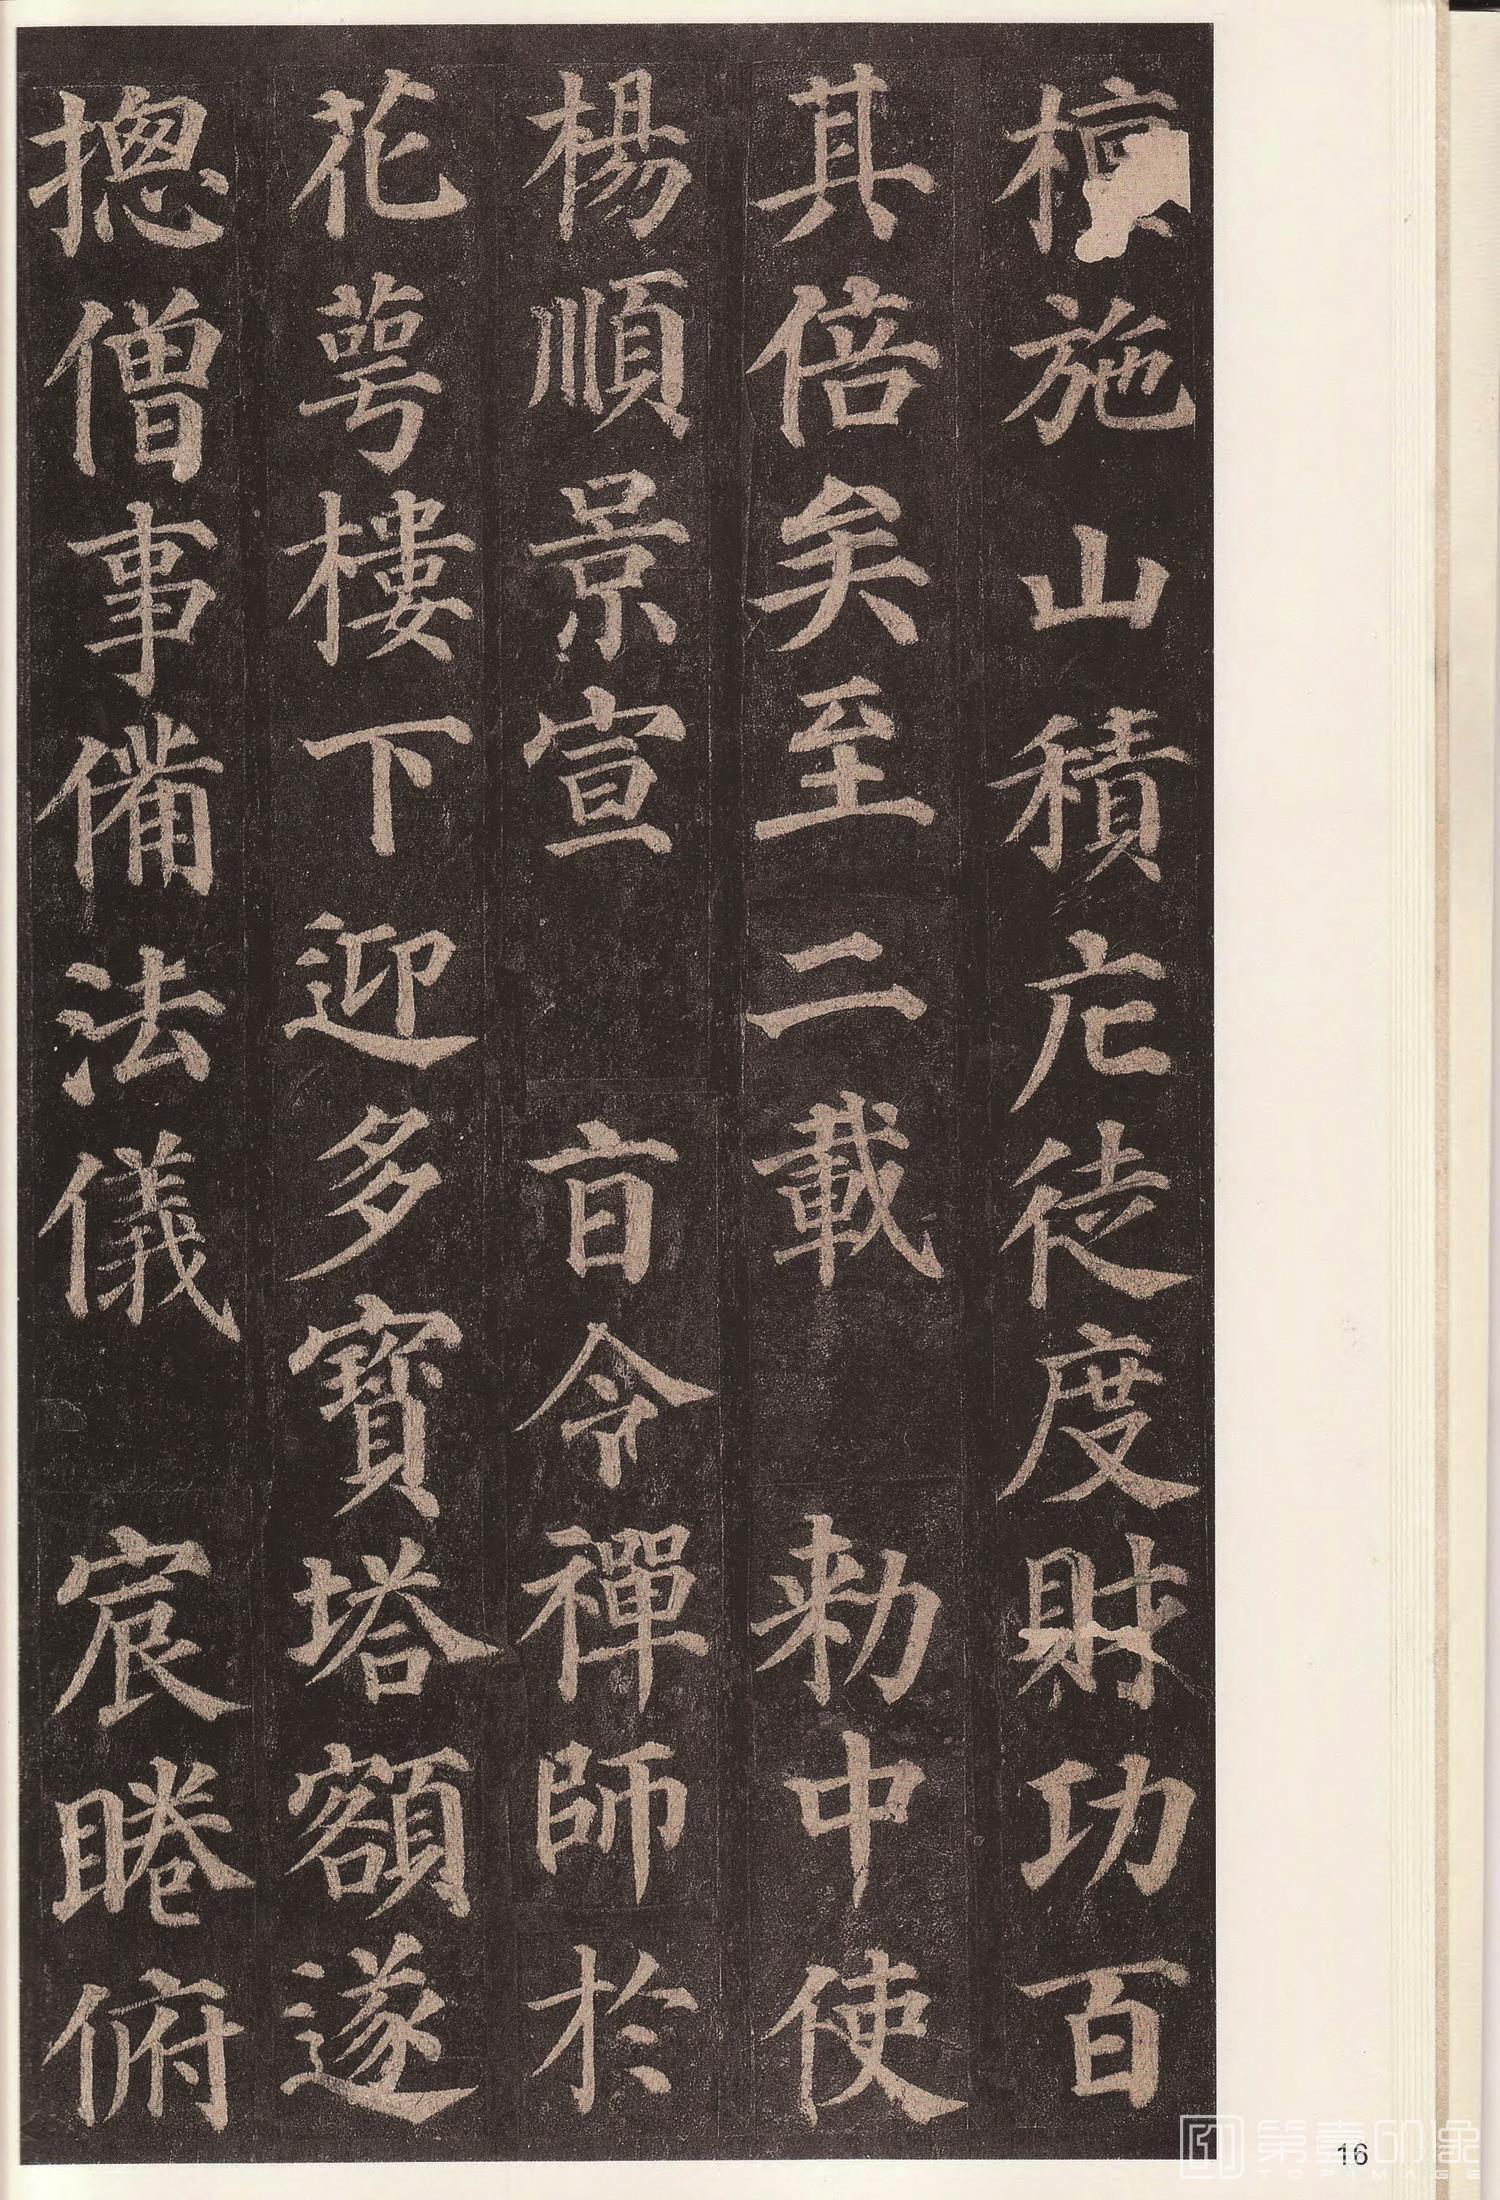 檀施山積庀徒度財功百
其倍矣至二載 勑中使
楊順景宣 㫖令禪師於
花萼樓下迎多寶塔額遂
摠僧事備法儀 宸睠俯
16
第壹印象
TOPIMAGE